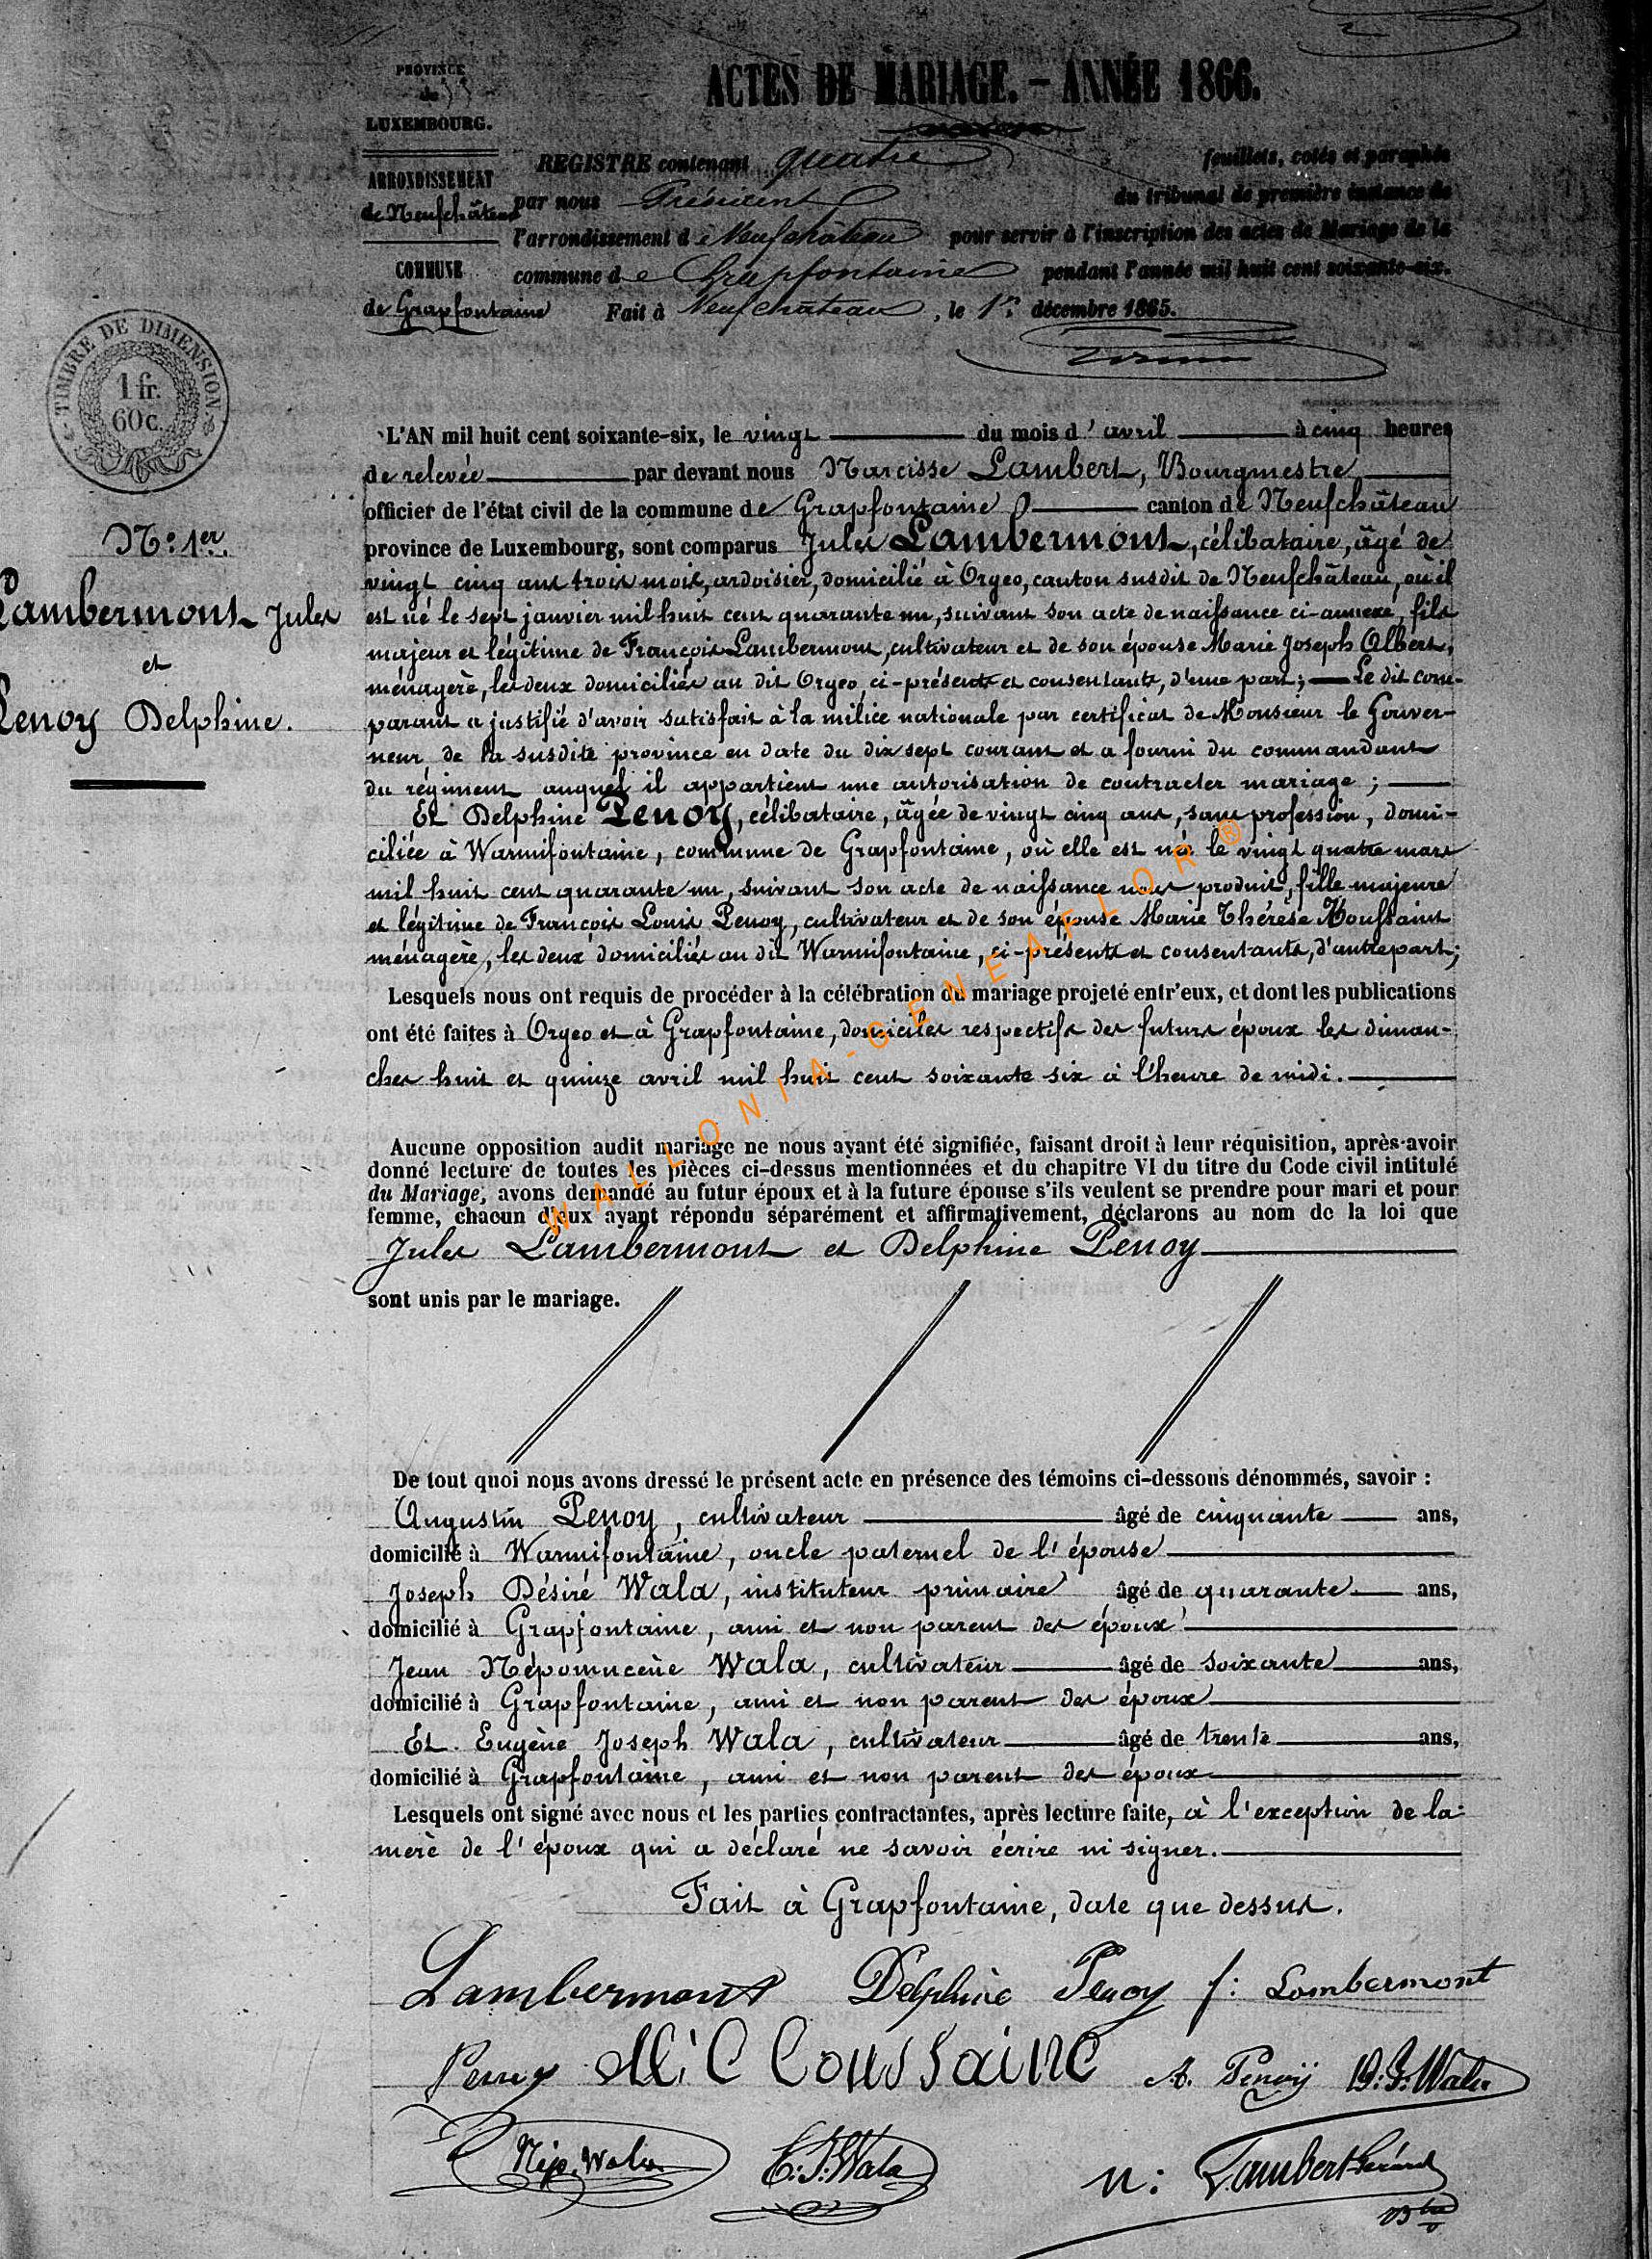 PROVINCE
de
LUXEMBOURG.
ARRONDISSEMENT
de Neufchâteau
COMMUNE
de Grapfontaine
ACTES DE MARIAGE. – ANNÉE 1866.
REGISTRE contenant quatre feuillets, cotés et paraphés
par nous Président du tribunal de première instance de
l'arrondissement de Neufchâteau pour servir à l'inscription des actes de Mariage de la
commune de Grapfontaine pendant l'année mil huit cent soixante-six.
Fait à Neufchâteau, le 1er décembre 1865.
TIMBRE DE DIMENSION.
1 fr.
60 c.
N° 1er
Lambermont Jules
et
Penoy Delphine.
L'AN mil huit cent soixante-six, le vingt du mois d'avril à cinq heures
de relevée par devant nous Narcisse Lambert, Bourgmestre
officier de l'état civil de la commune de Grapfontaine canton de Neufchâteau
province de Luxembourg, sont comparus Jules Lambermont, célibataire, âgé de
vingt cinq ans trois mois, ardoisier, domicilié à Orgeo, canton susdit de Neufchâteau, où il
est né le sept janvier mil huit cent quarante un, suivant son acte de naissance ci-annexé, fils
majeur et légitime de François Lambermont, cultivateur et de son épouse Marie Joseph Albert,
ménagère, les deux domiciliés au dit Orgeo, ci-présents et consentants, d'une part; — Le dit com-
parant a justifié d'avoir satisfait à la milice nationale par certificat de Monsieur le Gouver-
neur de la susdite province en date du dix sept courant et a fourni du commandant
du régiment auquel il appartient une autorisation de contracter mariage ;
Et Delphine Penoy, célibataire, âgée de vingt cinq ans, sans profession, domi-
ciliée à Warmifontaine, commune de Grapfontaine, où elle est née le vingt quatre mars
mil huit cent quarante un, suivant son acte de naissance nous produit, fille majeure
et légitime de François Louis Penoy, cultivateur et de son épouse Marie Thérèse Toussaint
ménagère, les deux domiciliés au dit Warmifontaine, ci-présents et consentants, d'autre part;
Lesquels nous ont requis de procéder à la célébration du mariage projeté entr'eux, et dont les publications
ont été faites à Orgeo et à Grapfontaine, domiciles respectifs des futurs époux les diman-
ches huit et quinze avril mil huit cent soixante six à l'heure de midi.
Aucune opposition audit mariage ne nous ayant été signifiée, faisant droit à leur réquisition, après avoir
donné lecture de toutes les pièces ci-dessus mentionnées et du chapitre VI du titre du Code civil intitulé
du Mariage, avons demandé au futur époux et à la future épouse s'ils veulent se prendre pour mari et pour
femme, chacun d'eux ayant répondu séparément et affirmativement, déclarons au nom de la loi que
Jules Lambermont et Delphine Penoy
sont unis par le mariage.
WALLONIA-GENEAFLOR ®
De tout quoi nous avons dressé le présent acte en présence des témoins ci-dessous dénommés, savoir :
Augustin Penoy, cultivateur âgé de cinquante ans,
domicilié à Warmifontaine, oncle paternel de l'épouse
Joseph Désiré Wala, instituteur primaire âgé de quarante ans,
domicilié à Grapfontaine, ami et non parent des époux
Jean Népomucène Wala, cultivateur âgé de soixante ans,
domicilié à Grapfontaine, ami et non parent des époux
Et Eugène Joseph Wala, cultivateur âgé de trente ans,
domicilié à Grapfontaine, ami et non parent des époux
Lesquels ont signé avec nous et les parties contractantes, après lecture faite, à l'exception de la
mère de l'époux qui a déclaré ne savoir écrire ni signer.
Fait à Grapfontaine, date que dessus.
Lambermont Delphine Penoy f: Lambermont
Penoy M: C Coussainc A. Penoÿ D.J. Wala
Nép. Wala E:J:Wala N: Lambert